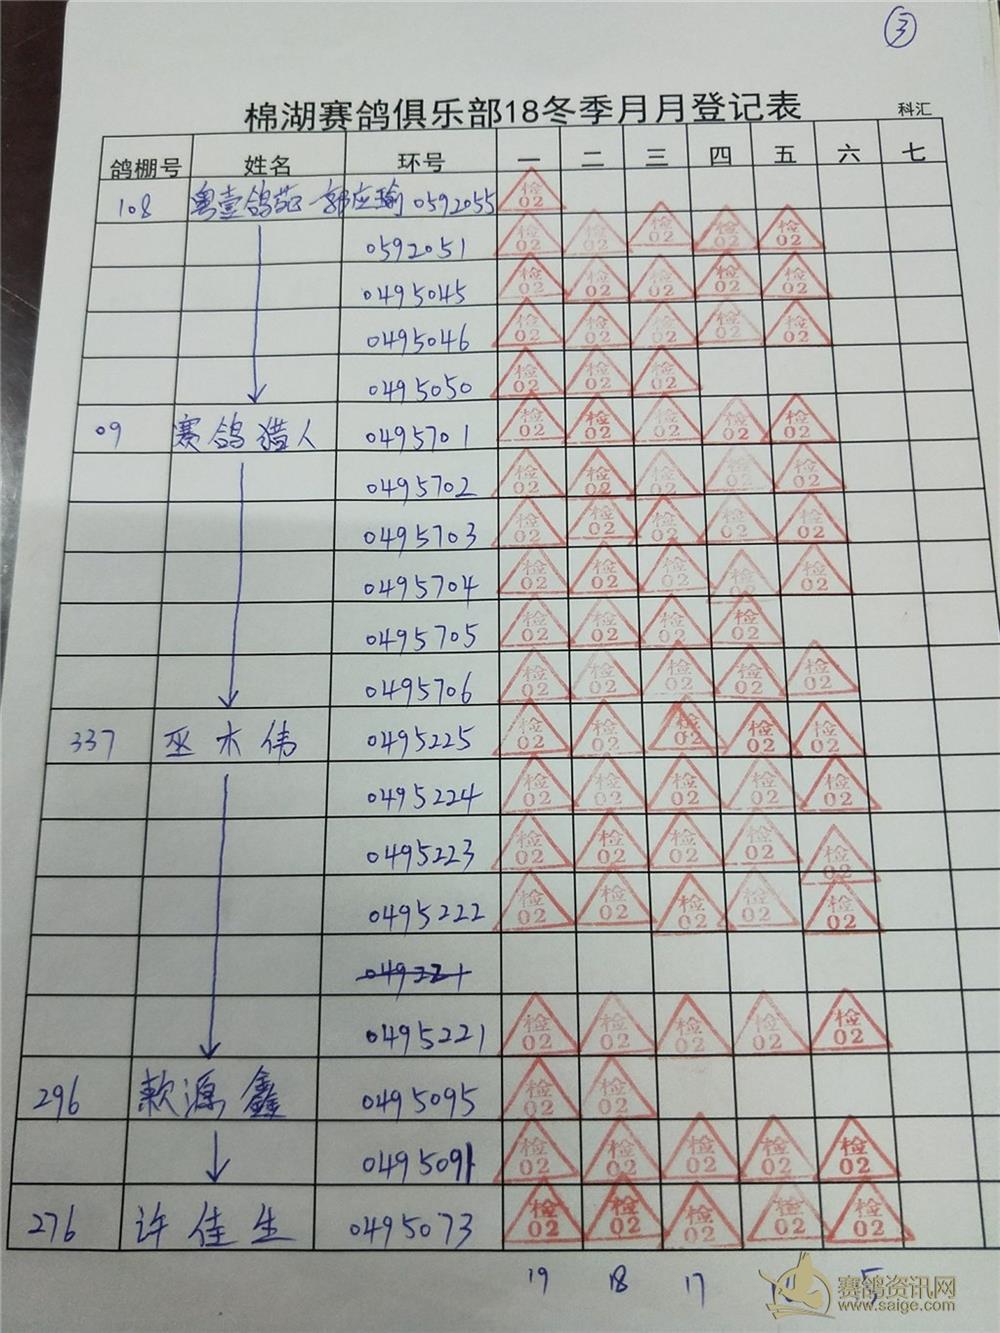 ③
棉湖赛鸽俱乐部18冬季月月登记表 科汇
鸽棚号 姓名 环号 一 二 三 四 五 六 七
108 粤壹鸽苑 郭应瑜 0592055 检02
0592051 检02 检02 检02 检02 检02
0495045 检02 检02 检02 检02 检02
0495046 检02 检02 检02 检02 检02
0495050 检02 检02 检02
09 赛鸽猎人 0495701 检02 检02 检02 检02 检02
0495702 检02 检02 检02 检02 检02
0495703 检02 检02 检02 检02 检02
0495704 检02 检02 检02 检02 检02
0495705 检02 检02 检02 检02
0495706 检02 检02 检02 检02 检02
337 巫木伟 0495225 检02 检02 检02 检02 检02
0495224 检02 检02 检02 检02 检02
0495223 检02 检02 检02 检02 检02
0495222 检02 检02 检02 检02 检02
0495221 检02 检02 检02 检02 检02
296 源鑫 0495095 检02 检02
0495091 检02 检02 检02 检02 检02
276 许佳生 0495073 检02 检02 检02 检02 检02
19 18 17
赛鸽资讯网
www.saige.com